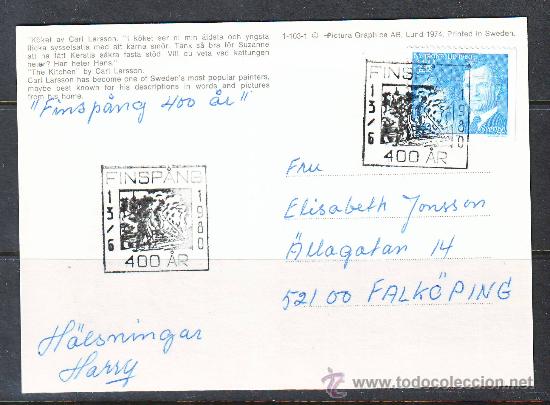 "Köket av Carl Larsson. "I köket ser ni min äldsta och yngsta
flicka sysselsatta med att kärna smör. Tänk så bra för Suzanne
att ha fått Kerstis säkra fasta stöd. Vill du veta vad kattungen
heter? Han heter Hans."
"The Kitchen" by Carl Larsson.
Carl Larsson has become one of Sweden's most popular painters,
maybe best known for his descriptions in words and pictures
from his home.
1-103-1 © Pictura Graphica AB, Lund 1974, Printed in Sweden.
"Finspång 400 år"
FINSPÅNG
13/6
1980
400 ÅR
FINSPÅNG
13/6
1980
400 ÅR
SVERIGE
Fru
Elisabeth Jonsson
Ållagatan 14
521 00 FALKÖPING
Hälsningar
Harry
www.todocoleccion.net